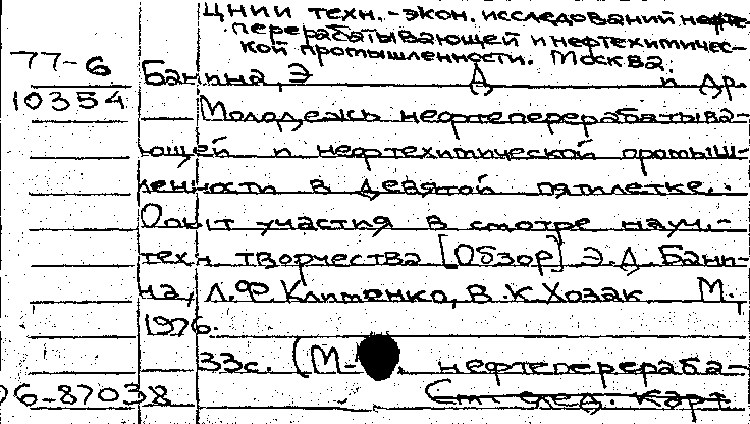 ЦНИИ техн.-экон. исследований нефте-
перерабатывающей и нефтехимичес-
кой промышленности. Москва.
77-6
Банина, Э Д и др.
10354
Молодежь нефтеперерабатыва-
ющей и нефтехимической промыш-
ленности в девятой пятилетке.
Опыт участия в смотре науч.-
техн творчества [Обзор] Э.Д. Бани-
на, Л.Ф Клименко, В.К Хозак М.,
1976.
33с. (М- нефтеперераба-
76-87038 См. след. карт